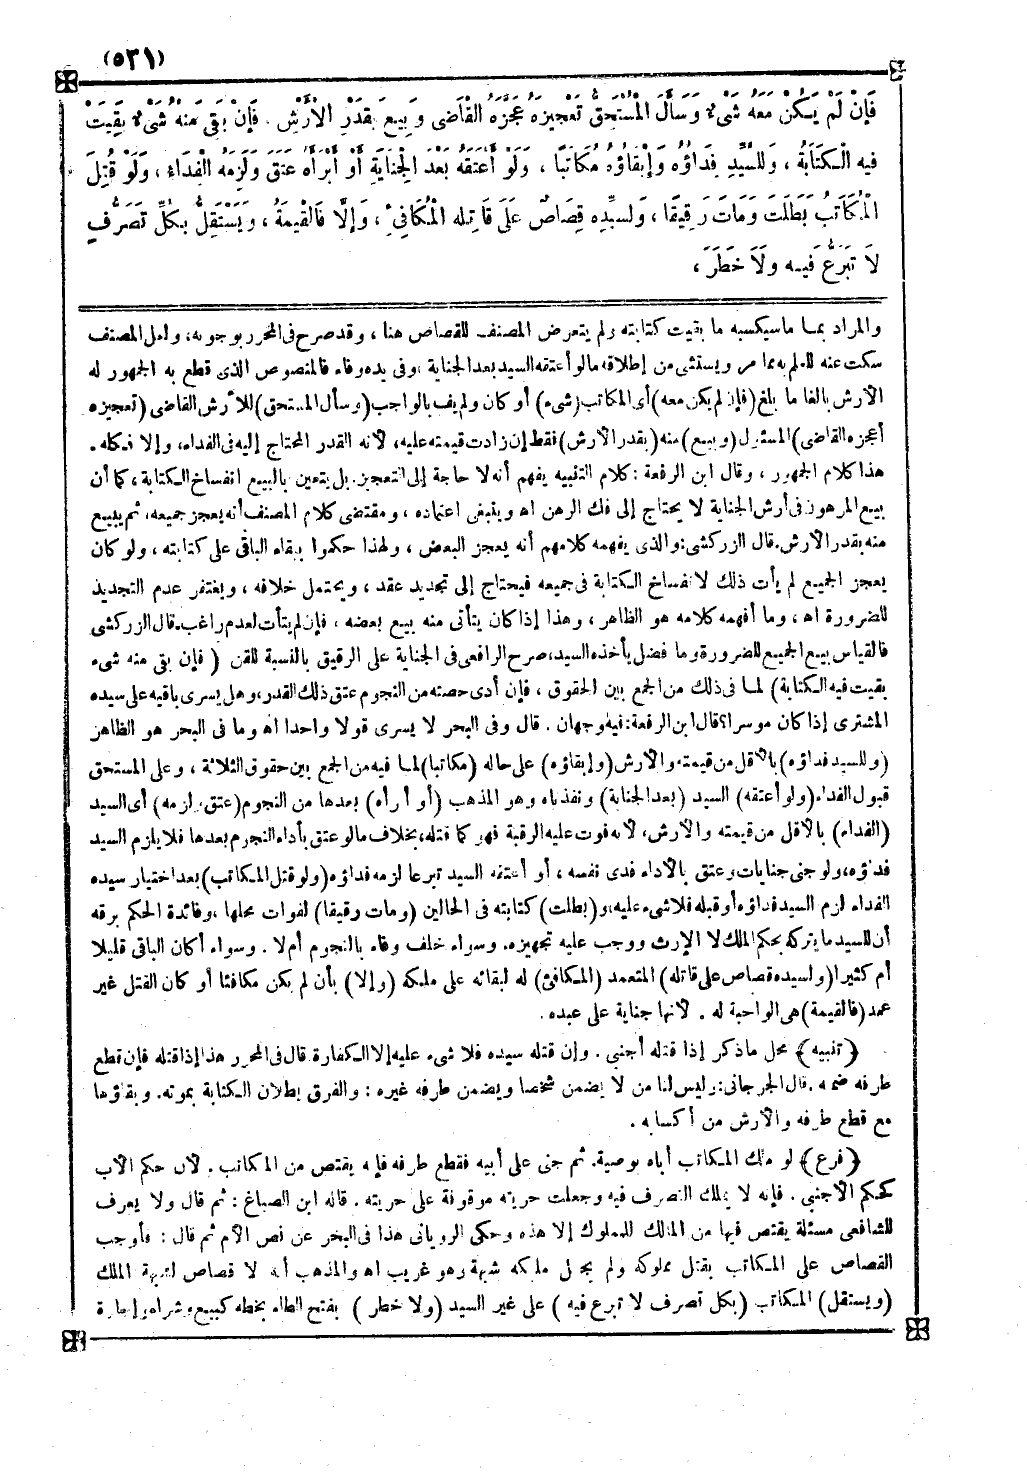 (٥٣١)
فَإِنْ لَمْ يَكُنْ مَعَهُ شَىْءٌ وَسَأَلَ الْمُسْتَحِقُّ تَعْجِيزَهُ عَجَّزَهُ الْقَاضِى وَبِيعَ بِقَدْرِ الْأَرْشِ . فَإِنْ بَقِىَ مِنْهُ شَىْءٌ بَقِيَتْ
فِيهِ الْكِتَابَةُ ، وَلِلسَّيِّدِ فِدَاؤُهُ وَإِبْقَاؤُهُ مُكَاتَبًا ، وَلَوْ أَعْتَقَهُ بَعْدَ الْجِنَايَةِ أَوْ أَبْرَأَهُ عَتَقَ وَلَزِمَهُ الْفِدَاءُ ، وَلَوْ قُتِلَ
الْمُكَاتَبُ بَطَلَتْ وَمَاتَ رَقِيقًا ، وَلِسَيِّدِهِ قِصَاصٌ عَلَى قَاتِلِهِ الْمُكَافِئِ ، وَإِلَّا فَالْقِيمَةُ ، وَيَسْتَقِلُّ بِكُلِّ تَصَرُّفٍ
لَا تَبَرُّعَ فِيهِ وَلَا خَطَرَ ،
والمراد بما ماسيكسبه ما بقيت كتابته ولم يتعرض المصنف للقصاص هنا ، وقد صرح فى المحرر بوجوبه، ولعل المصنف
سكت عنه للعلم به مما مر ويستثنى من إطلاقه مالو أعتقه السيد بعد الجناية ،وفى يده وفاء فالمنصوص الذى قطع به الجمهور له
الأرش بالغا ما بلغ (فإن لم يكن معه) أى المكاتب (شىء) أو كان ولم يف بالواجب (وسأل المستحق) للأرش القاضى (تعجيزه
أعجزه القاضى) المسئول (وبيع) منه (بقدر الأرش) فقط إن زادت قيمته عليه، لأنه القدر المحتاج إليه فى الفداء، وإلا فكله .
هذا كلام الجمهور ، وقال ابن الرفعة : كلام التنبيه يفهم أنه لا حاجة إلى التعجيز. بل يتعين بالبيع انفساخ الكتابة ، كما أن
بيع المرهون فى أرش الجناية لا يحتاج إلى فك الرهن اه وينبغى اعتماده ، ومقتضى كلام المصنف أنه يعجز جميعه، ثم يبيع
منه بقدر الأرش. قال الزركشى: والذى يفهمه كلامهم أنه يعجز البعض ، ولهذا حكموا ببقاء الباقى على كتابته ، ولو كان
يعجز الجميع لم يأت ذلك لانفساخ الكتابة فى جميعه فيحتاج إلى تجديد عقد ، ويحتمل خلافه ، ويغتفر عدم التجديد
للضرورة اه ، وما أفهمه كلامه هو الظاهر ، وهذا إذا كان يتأتى منه بيع بعضه ، فإن لم يتأت لعدم راغب. قال الزركشى
فالقياس بيع الجميع للضرورة وما فضل يأخذه السيد، صرح الرافعى فى الجناية على الرقيق بالنسبة للقن ( فإن بقى منه شىء
بقيت فيه الكتابة) لما فى ذلك من الجمع بين الحقوق ، فإن أدى حصته من النجوم عتق ذلك القدر، وهل يسرى باقيه على سيده
المشترى إذا كان موسرا؟ قال ابن الرفعة: فيه وجهان . قال وفى البحر لا يسرى قولا واحدا اه وما فى البحر هو الظاهر
(وللسيد فداؤه) بالأقل من قيمته والأرش (وإبقاؤه) على حاله (مكاتبا) لما فيه من الجمع بين حقوق الثلاثة ، وعلى المستحق
قبول الفداء (ولو أعتقه) السيد (بعد الجناية) ونفذناه وهو المذهب (أو أبرأه) بعدها من النجوم (عتق، ولزمه) أى السيد
(الفداء) بالأقل من قيمته والأرش، لأنه فوت عليه الرقبة فهو كما قتله، بخلاف مالو عتق بأداء النجوم بعدها فلا يلزم السيد
فداؤه، ولو جنى جنايات وعتق بالأداء فدى نفسه ، أو أعتقه السيد تبرعا لزمه فداؤه (ولو قتل المكاتب) بعد اختيار سيده
الفداء لزم السيد فداؤه أو قبله فلا شىء عليه، و(بطلت) كتابته فى الحالين (ومات رقيقا) لفوات محلها ،وفائدة الحكم برقه
أن للسيد ما يتركه بحكم الملك لا الإرث ووجب عليه تجهيزه. وسواء خلف وفاء بالنجوم أم لا . وسواء أكان الباقى قليلا
أم كثيرا (ولسيده قصاص على قاتله) المتعمد (المكافئ) له لبقائه على ملكه (وإلا) بأن لم يكن مكافئا أو كان القتل غير
عمد (فالقيمة) هى الواجبة له . لأنها جناية على عبده .
﴿تنبيه﴾ محل ماذكر إذا قتله أجنبى . وإن قتله سيده فلا شىء عليه إلا الكفارة. قال فى المحرر هذا إذا قتله فإن قطع
طرفه ضمنه .قال الجرجانى: وليس لنا من لا يضمن شخصا ويضمن طرفه غيره : والفرق بطلان الكتابة بموته. وبقاؤها
مع قطع طرفه والأرش من أكسابه .
﴿فرع﴾ لو ملك المكاتب أباه بوصية. ثم جنى على أبيه فقطع طرفه فإنه يقتص من المكاتب . لأن حكم الأب
كحكم الأجنبى . فإنه لا يملك التصرف فيه وجعلت حريته موقوفة على حريته . قاله ابن الصباغ : ثم قال ولا يعرف
للشافعى مسئلة يقتص فيها من المالك للمملوك إلا هذه وحكى الرويانى هذا فى البحر عن نص الأم ثم قال : فأوجب
القصاص على المكاتب بقتل مملوكه ولم يجعل ملكه شبهة وهو غريب اه والمذهب أنه لا قصاص لشبهة الملك
(ويستقل) المكاتب (بكل تصرف لا تبرع فيه ) على غير السيد (ولا خطر ) بفتح الطاء بخطه كبيع، وشراء، وإجارة